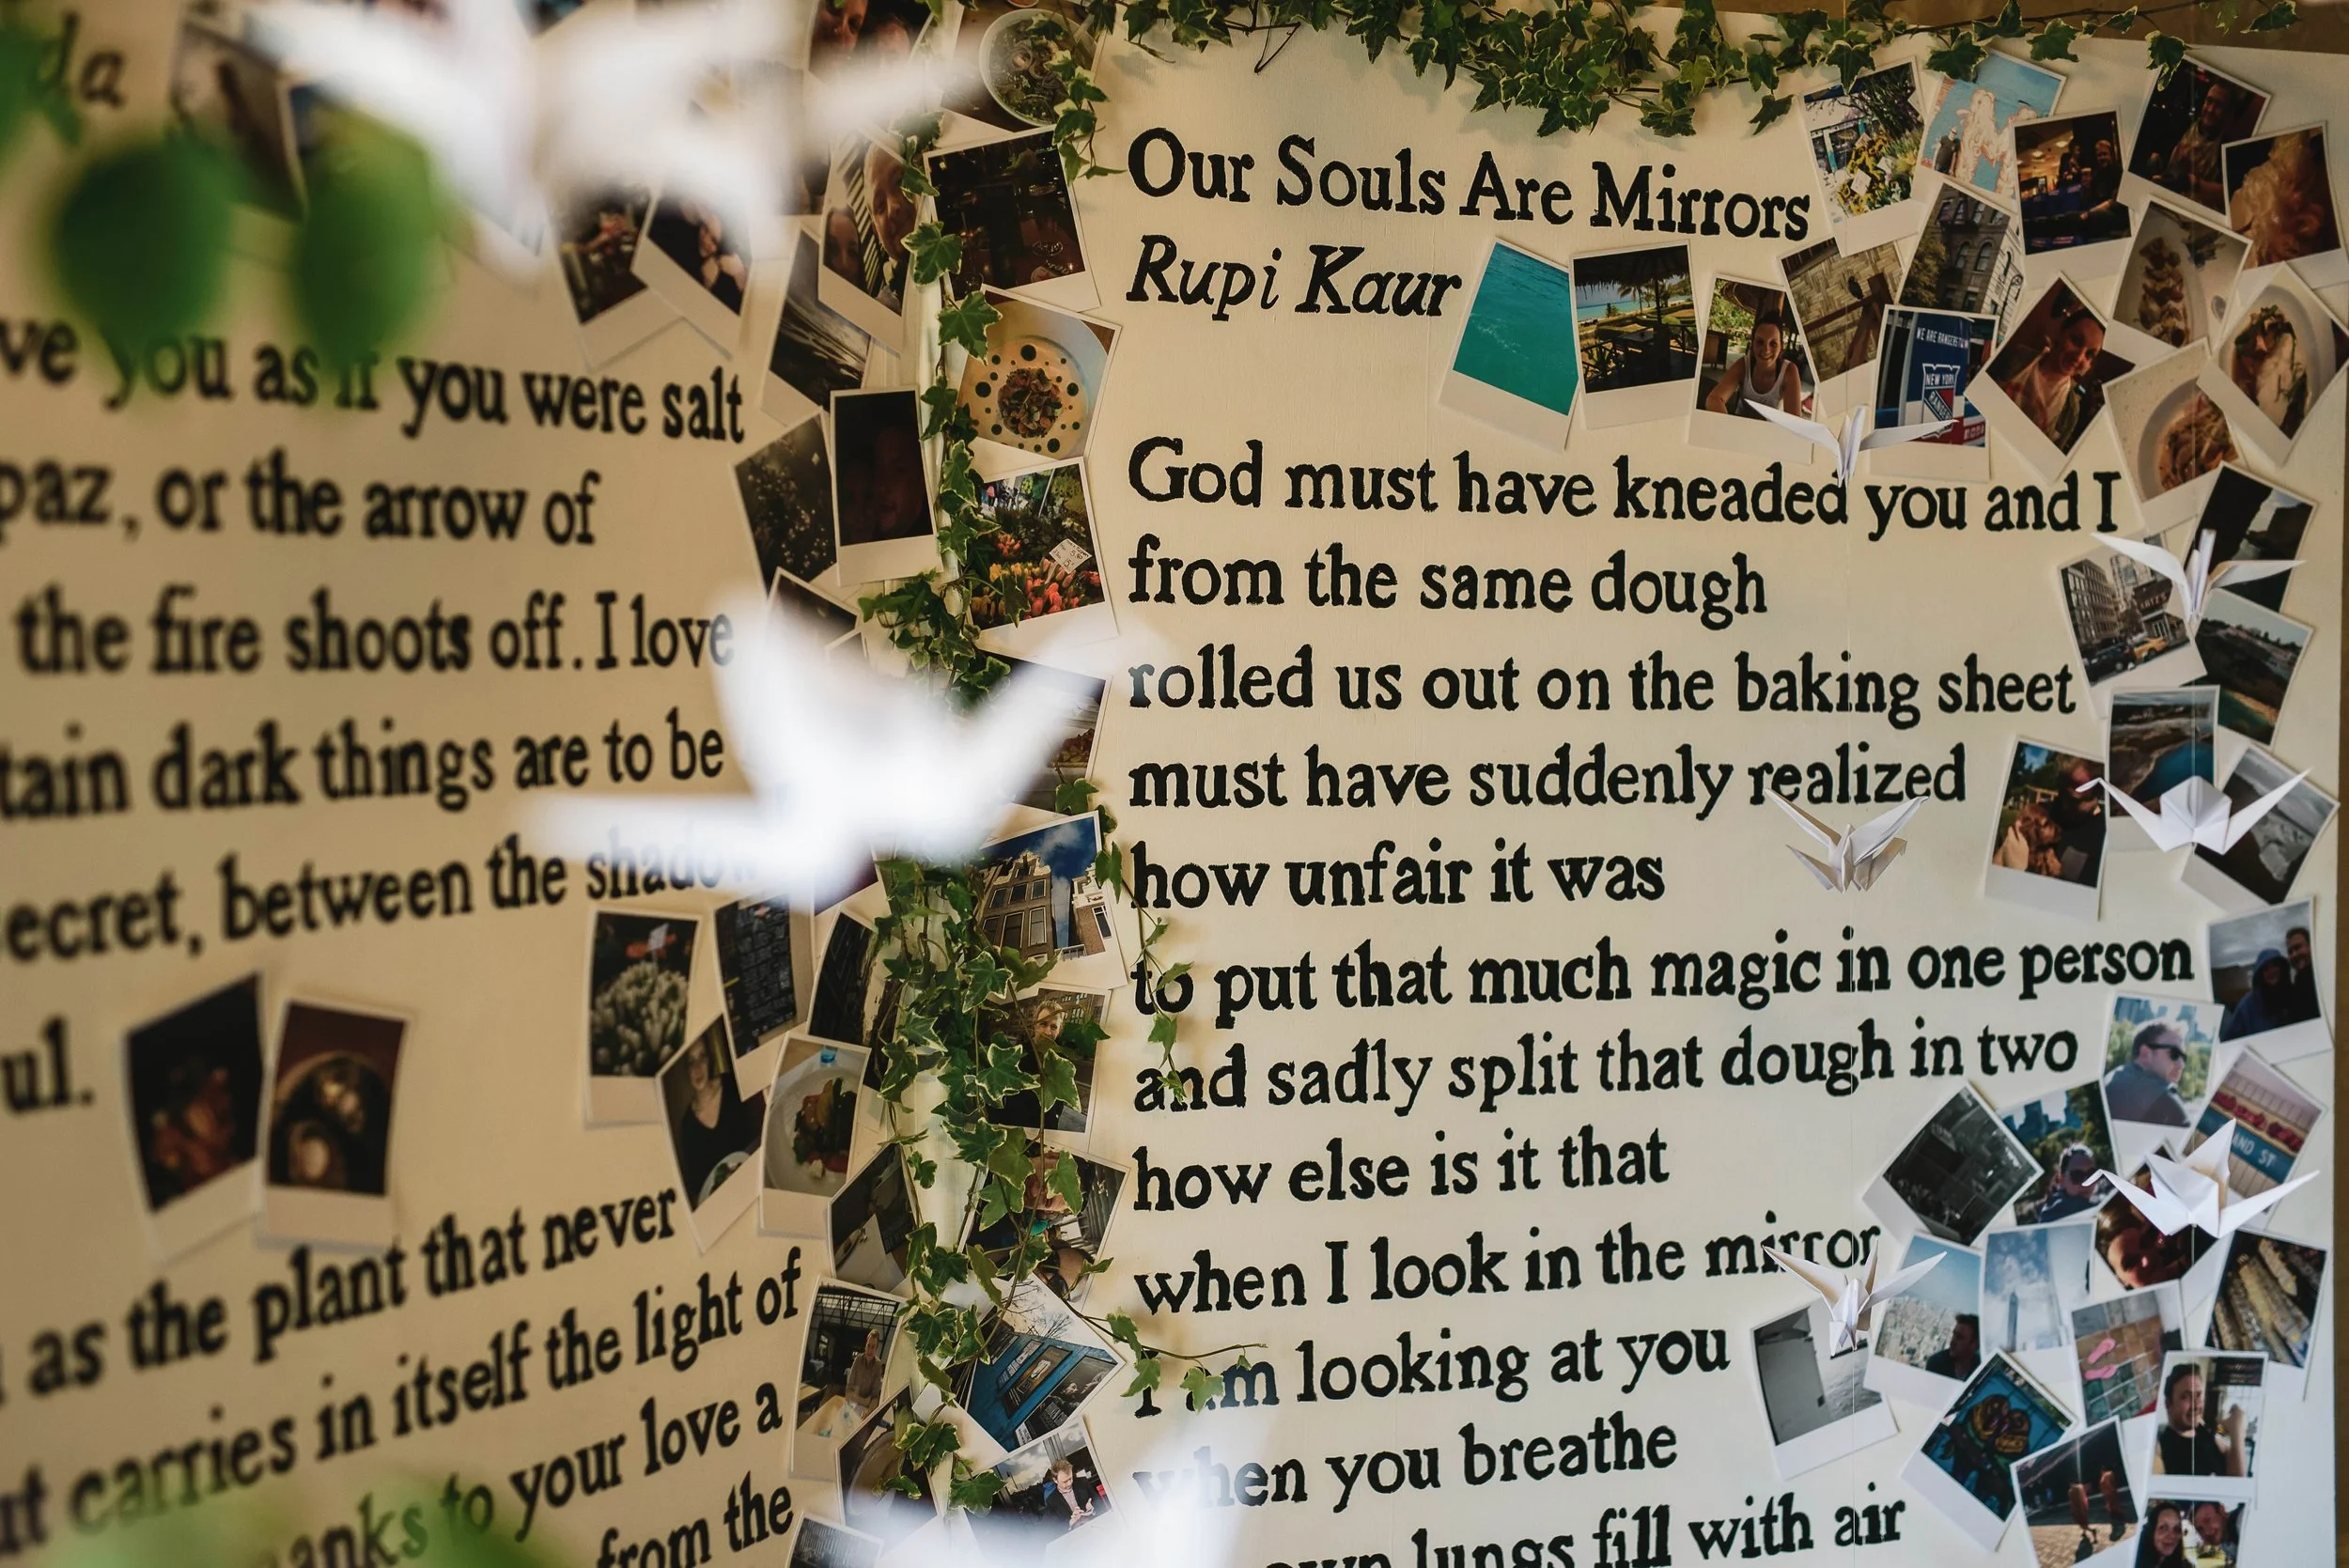 da
ve you as if you were salt
paz, or the arrow of
the fire shoots off. I love
tain dark things are to be
ecret, between the shadow
ul.
as the plant that never
ut carries in itself the light of
anks to your love a
from the
Our Souls Are Mirrors
Rupi Kaur
God must have kneaded you and I
from the same dough
rolled us out on the baking sheet
must have suddenly realized
how unfair it was
to put that much magic in one person
and sadly split that dough in two
how else is it that
when I look in the mirror
I am looking at you
when you breathe
own lungs fill with air
WE ARE RANGERSTOWN
NEW YORK
RANGERS
AND ST